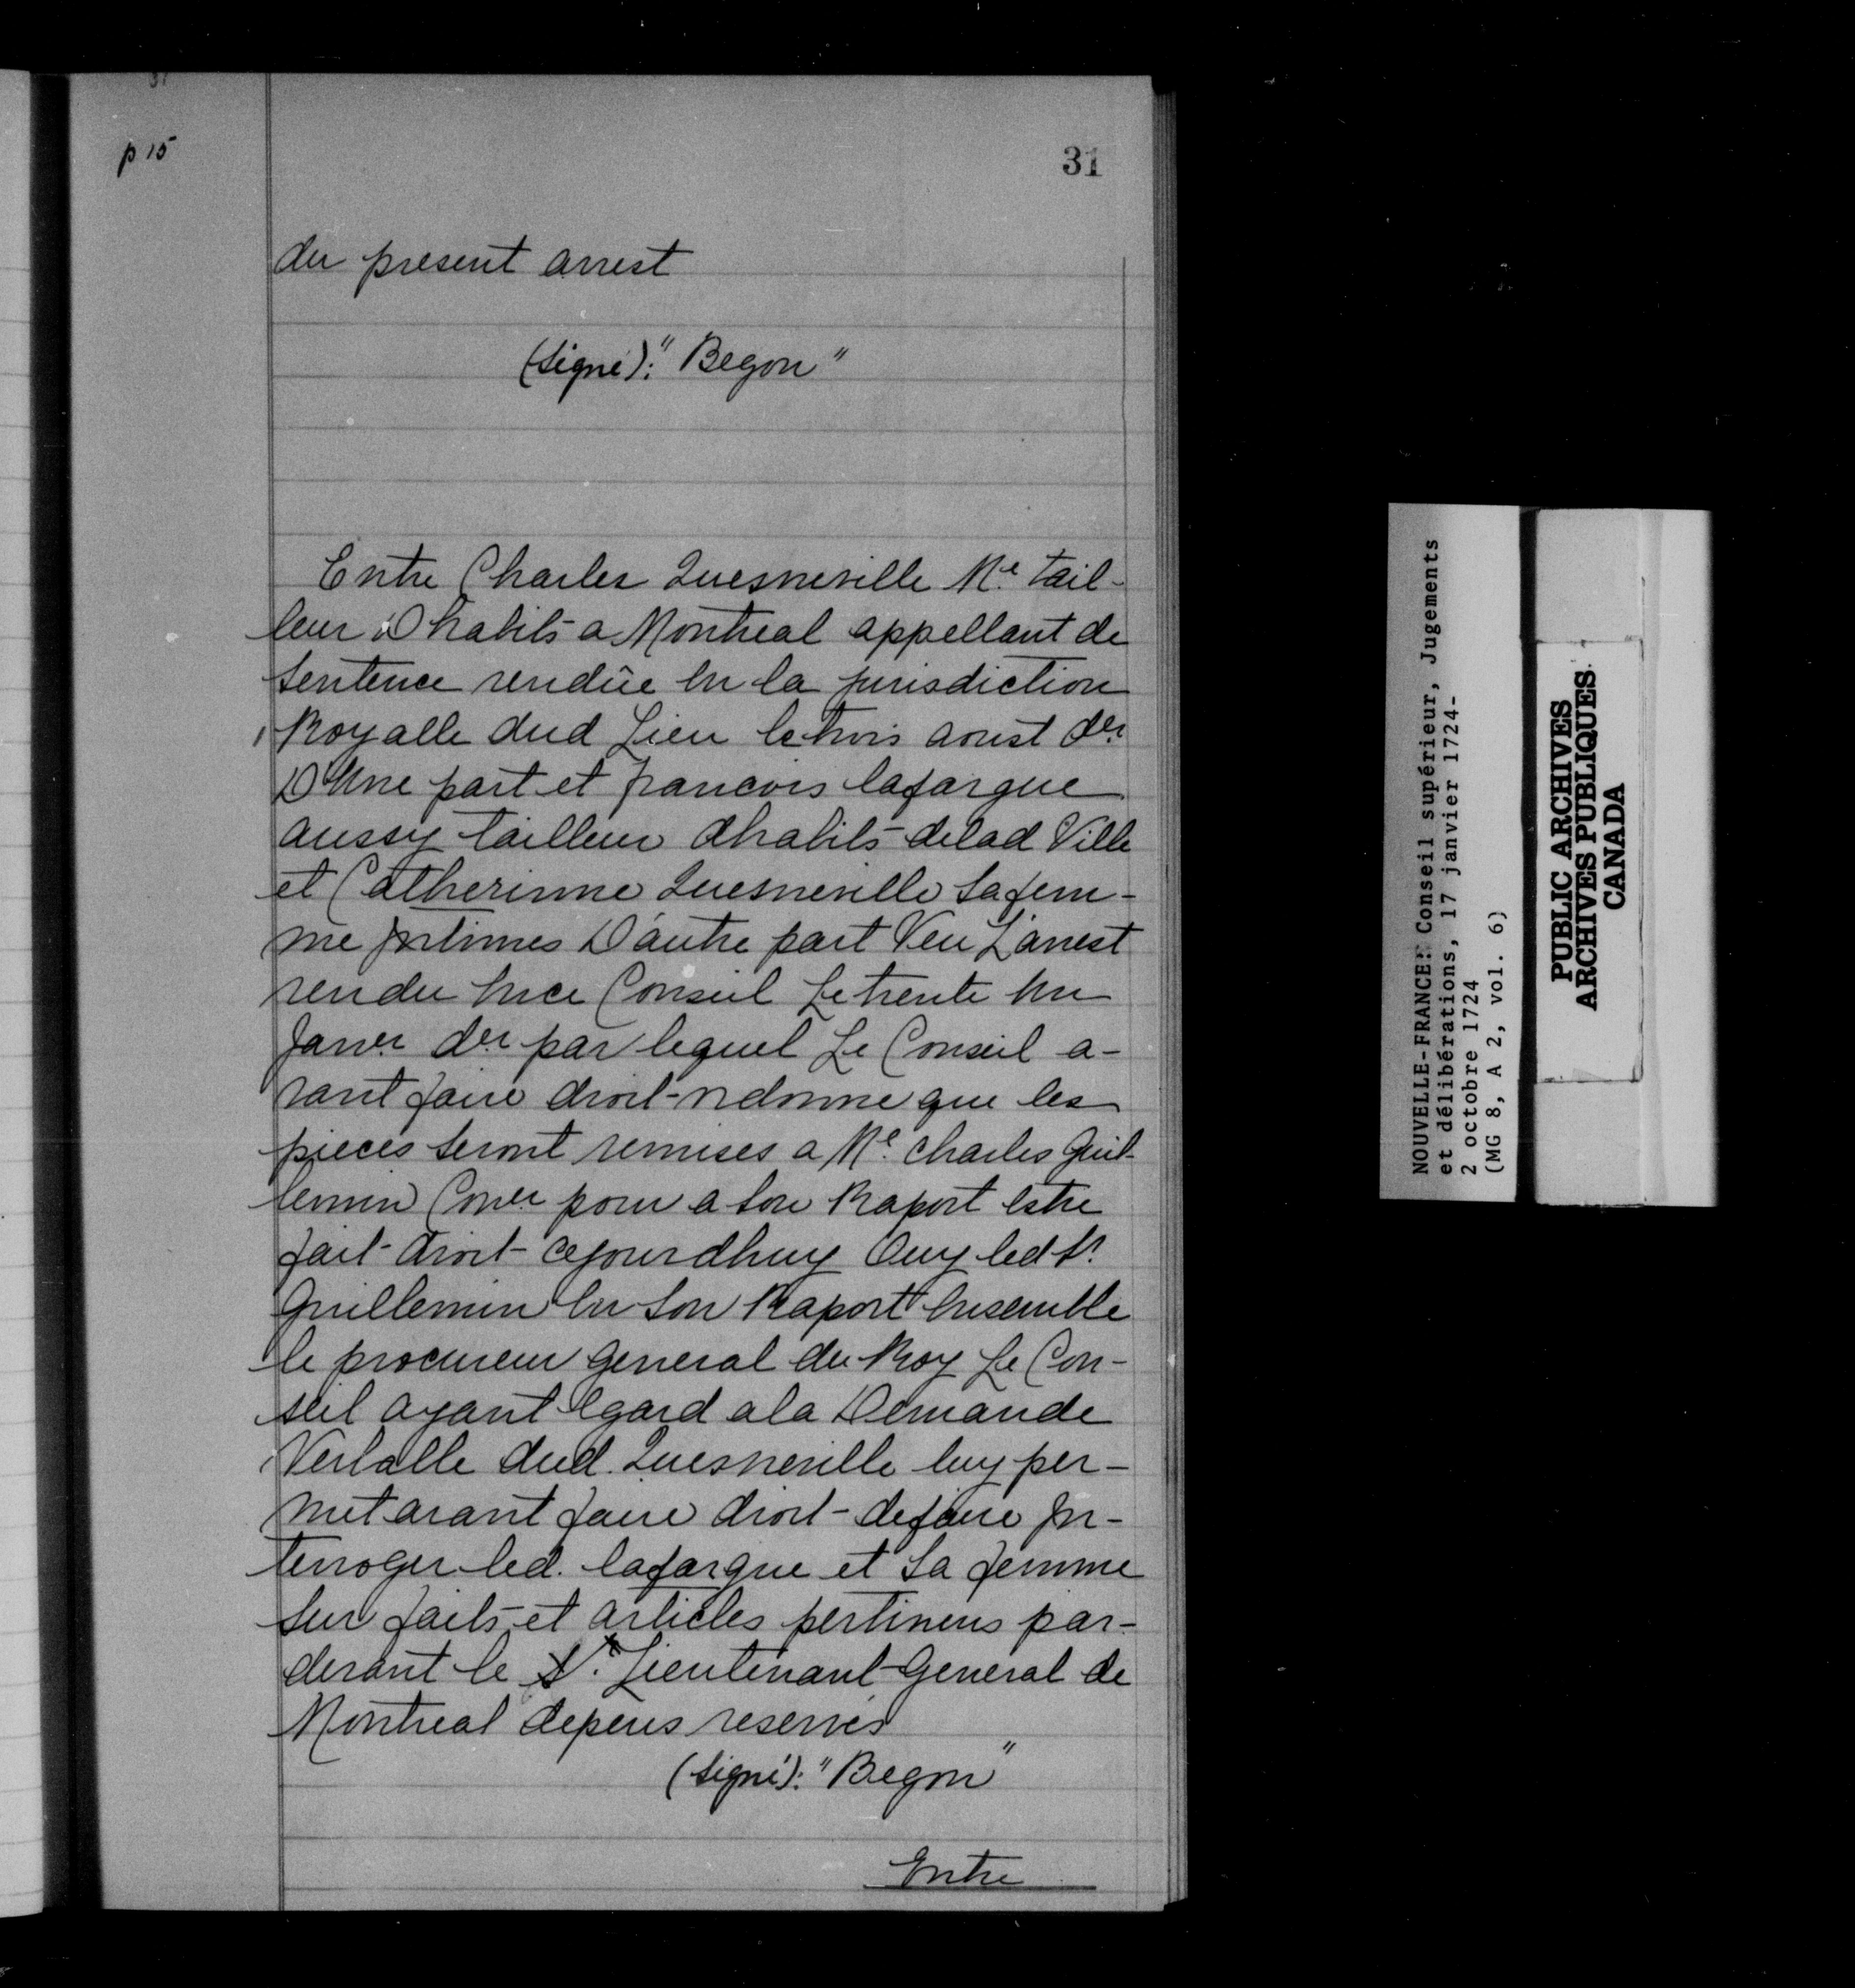 p 15
31
du present arrest
(Signé): "Begon"
Entre Charles Quesneville Me. tail-
leur Dhabits a Montreal appellant de
Sentence rendüe en la jurisdiction
Royalle dud Lieu le trois aoust der.
D'Une part et francois lafargue
aussy tailleur dhabits delad Ville
et Catherinne Quesneville Safem-
me Intimes D'autre part Veu L'arrest
rendu Ence Conseil Le trente un
Janer. der. par lequel Le Conseil a-
vant faire droit ordonne que les
pieces Seront remises a Me. charles Guil-
lemin Coner. pour a son Raport Estre
fait droit cejourdhuy Ouy led Sr.
Guillemin En Son Raport Ensemble
le procureur general du Roy Le Con-
seil ayant Egard a la Demande
Verballe dud. Quesneville luy per-
met avant faire droit defaire In-
terroger led. lafargue et Sa femme
Sur faits et articles pertinens par-
devant le Sr. Lieutenant General de
Montreal depens reservés
(Signé): "Begon"
Entre
NOUVELLE-FRANCE: Conseil supérieur, Jugements
et délibérations, 17 janvier 1724-
2 octobre 1724
(MG 8, A 2, vol. 6)
PUBLIC ARCHIVES
ARCHIVES PUBLIQUES
CANADA